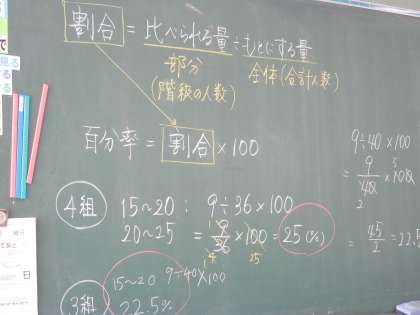 割合 = 比べられる量 ÷ もとにする量
部分 全体(合計人数)
(階級の人数)
百分率 = 割合 × 100
4組 15~20 : 9÷36×100
20~25 = 9/36 × 100 = 25(%)
4 25
15~20 9÷40×100
3組 22.5%
9÷40×100
= 9/40 × 100
2 5
= 45/2 = 22.5
日